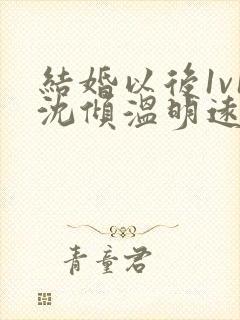 結婚以後1v1
沈傾溫明遠
青童君